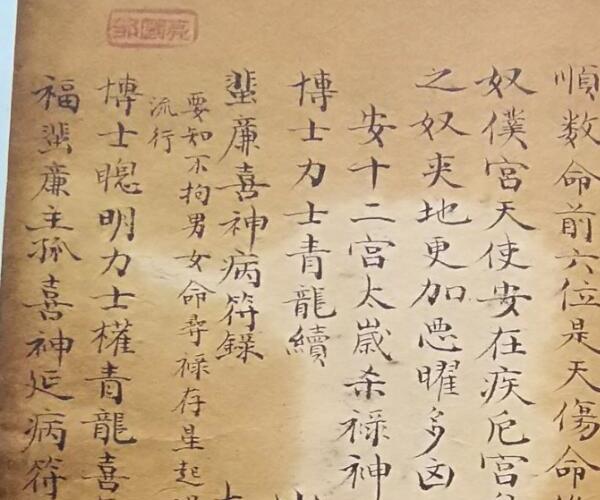 順数命前六位是天傷命
奴僕宮天使安在疾厄宮
之奴夾地更加惡曜多凶
安十二宮太歲杀祿神
博士力士青龍續
蜚廉喜神病符錄
要知不拘男女命尋祿存星起
流行
博士聰明力士權青龍喜
福蜚廉主孤喜神延病符